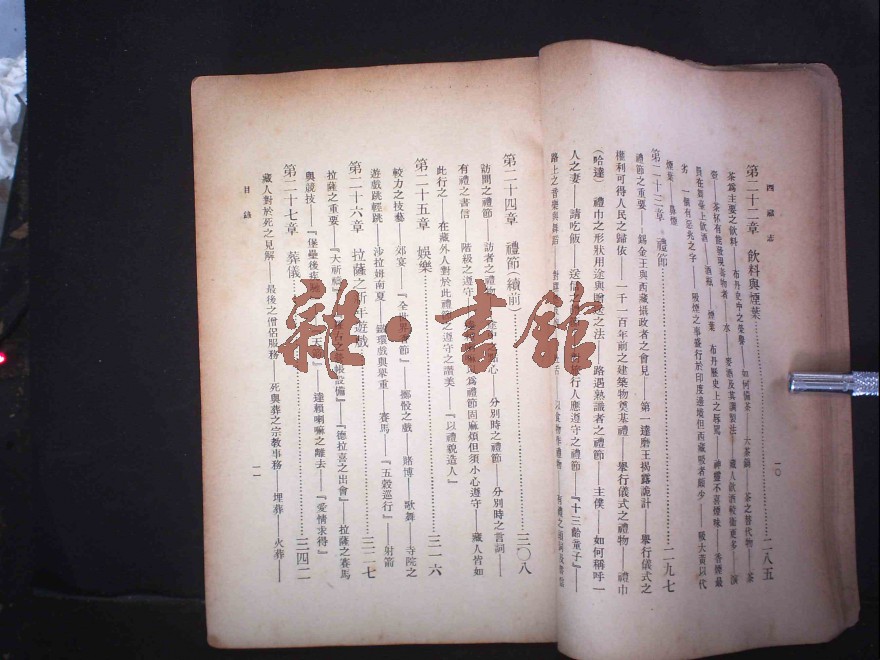 西藏志
一〇
第二十二章 飲料與煙葉……二八五
茶爲主要之飲料——布丹史中之榮譽——如何備茶——大茶鍋——茶之替代物——茶
壺——茶杯有能發現毒物者——水——麥酒及其調製法——藏人飲酒較衛更多——演
員在舞臺上飲酒——酒瓶——煙葉——布丹歷史上之辱罵——神靈不喜煙味——香煙最
劣——一個有惡兆之字——吸煙之事盛行於印度邊境但西藏吸者頗少——吸大黃以代
煙葉——鼻煙
第二十三章 禮節……二九七
禮節之重要——錫金王與西藏攝政者之會見——第一達磨王揭露詭計——舉行儀式之
權利可得人民之歸依——一千一百年前之建築物奠基禮——舉行儀式之禮物——禮巾
(哈達)禮巾之形狀用途與贈送之法——路遇熟識者之禮節——主僕——如何稱呼一
人之妻——請吃飯——送信之 行人應遵守之禮節——『十三飴童子』——
路上之音樂與舞蹈
第二十四章 禮節(續前)……三〇八
訪問之禮節——訪者之禮物 點心——分別時之禮節——分別時之言詞——
有禮之書信——階級之遵守 爲禮節固麻煩但須小心遵守——藏人皆如
此行之——在藏外人對於此禮節之遵守之讚美——『以禮貌造人』
第二十五章 娛樂……三一六
較力之技藝——郊宴——『全世界 節』——擲骰之戲——賭博——歌舞——寺院之
遊戲跳輕跳——沙拉姆南夏——鐵環戲與舉重——賽馬——『五穀巡行』——射箭
第二十六章 拉薩之新年遊戲……三二七
拉薩之重要——『大祈禱 帳設備』——『德拉喜之出會』——拉薩之賽馬
與競技——『堡壘後疾馳 天 』——達賴喇嘛之離去——『愛情求得』
第二十七章 葬儀……三四二
藏人對於死之見解——最後之僧侶服務——死與葬之宗教事務——埋葬——火葬——
目錄
一一
雜·書館